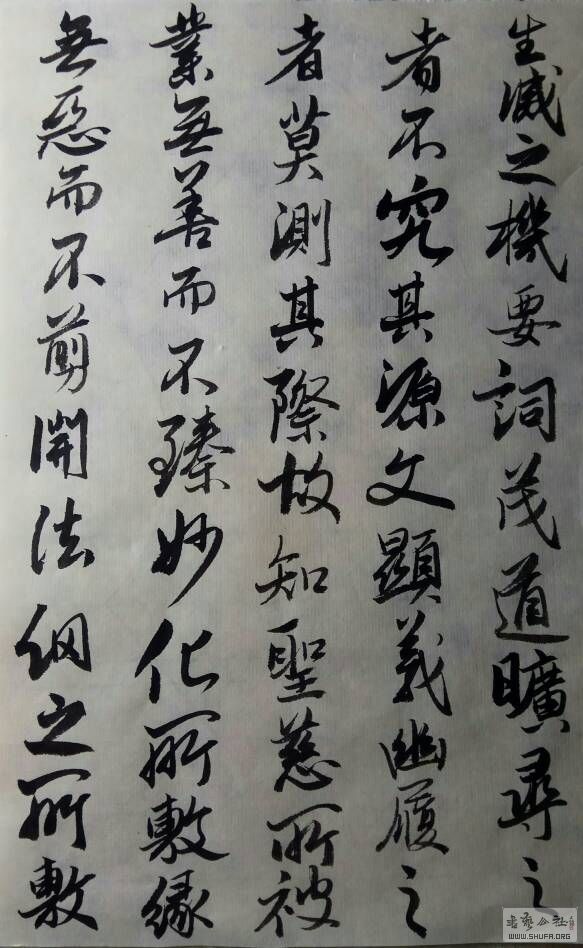 生滅之機要詞茂道曠尋之
者不究其源文顯義幽履之
者莫測其際故知聖慈所被
業無善而不臻妙化所敷緣
無惡而不翦開法網之所敷
書藝公社
WWW.SHUFA.ORG